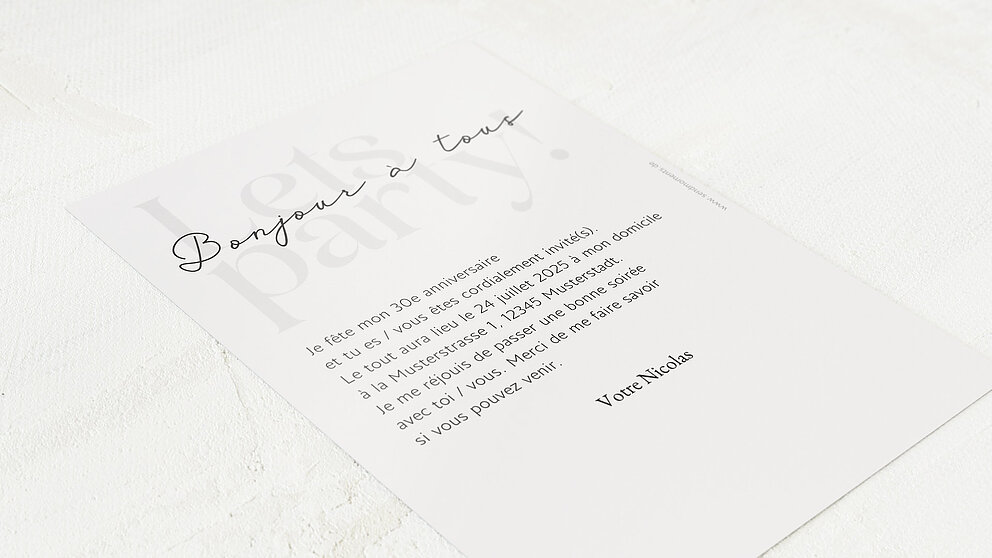 Lets
party!
Bonjour à tous
Je fête mon 30e anniversaire
et tu es / vous êtes cordialement invité(s).
Le tout aura lieu le 24 juillet 2025 à mon domicile
à la Musterstrasse 1, 12345 Musterstadt.
Je me réjouis de passer une bonne soirée
avec toi / vous. Merci de me faire savoir
si vous pouvez venir.
Votre Nicolas
www.sendmoments.de